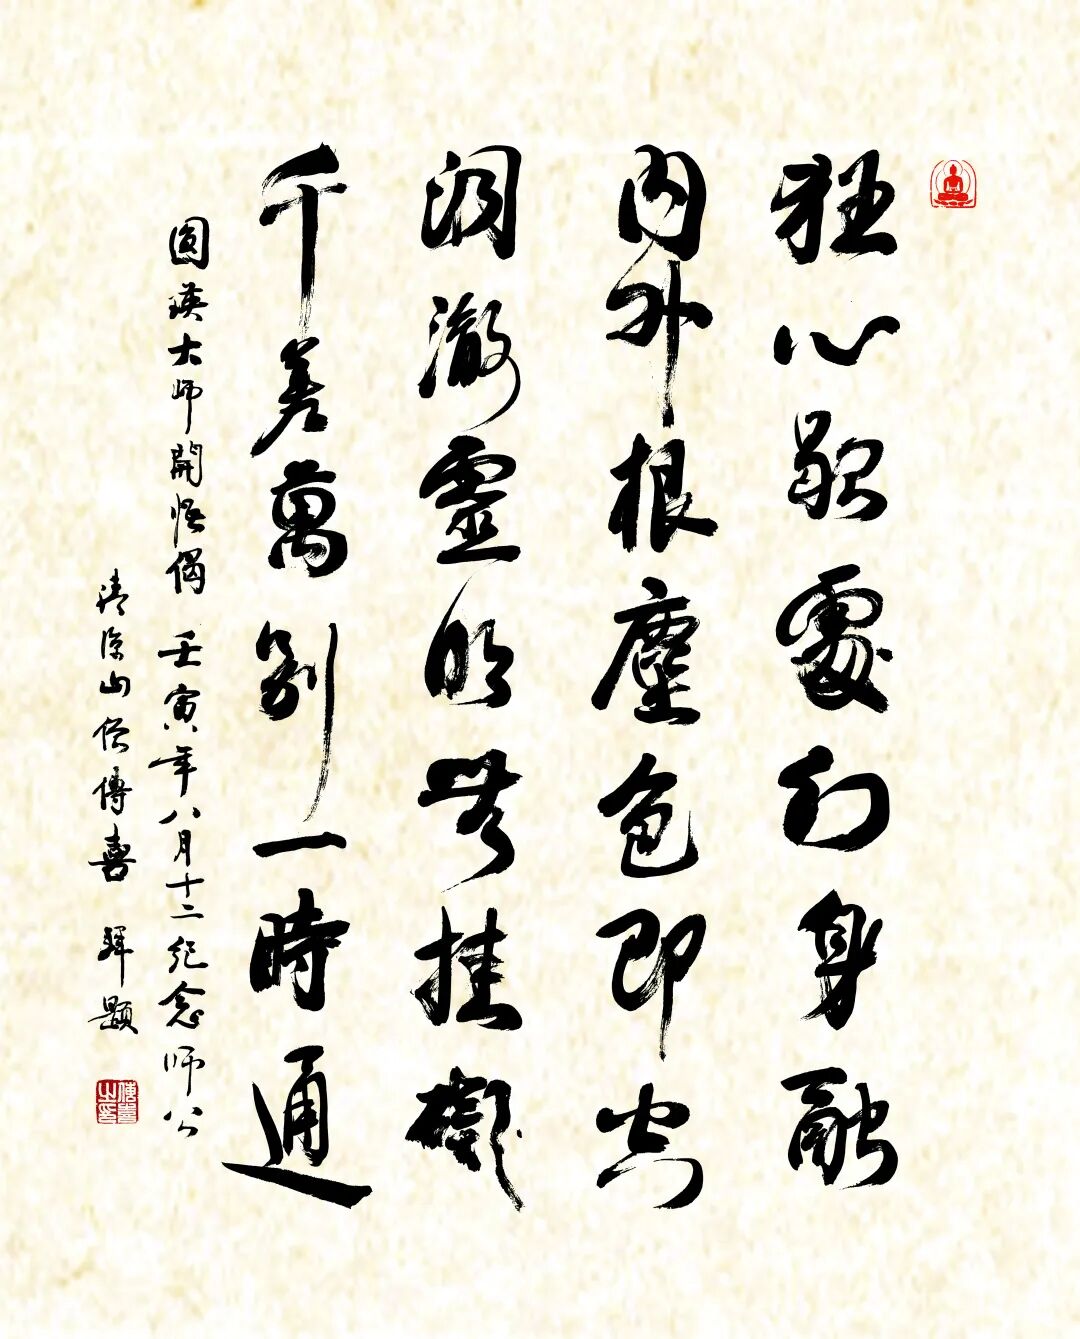 狂心歇處幻身融
內外根塵色即空
洞澈靈明無挂礙
千差萬別一時通
圓瑛大师開悟偈 壬寅年八月十二紀念师公
清涼山僧傳喜 拜題
傳喜之印